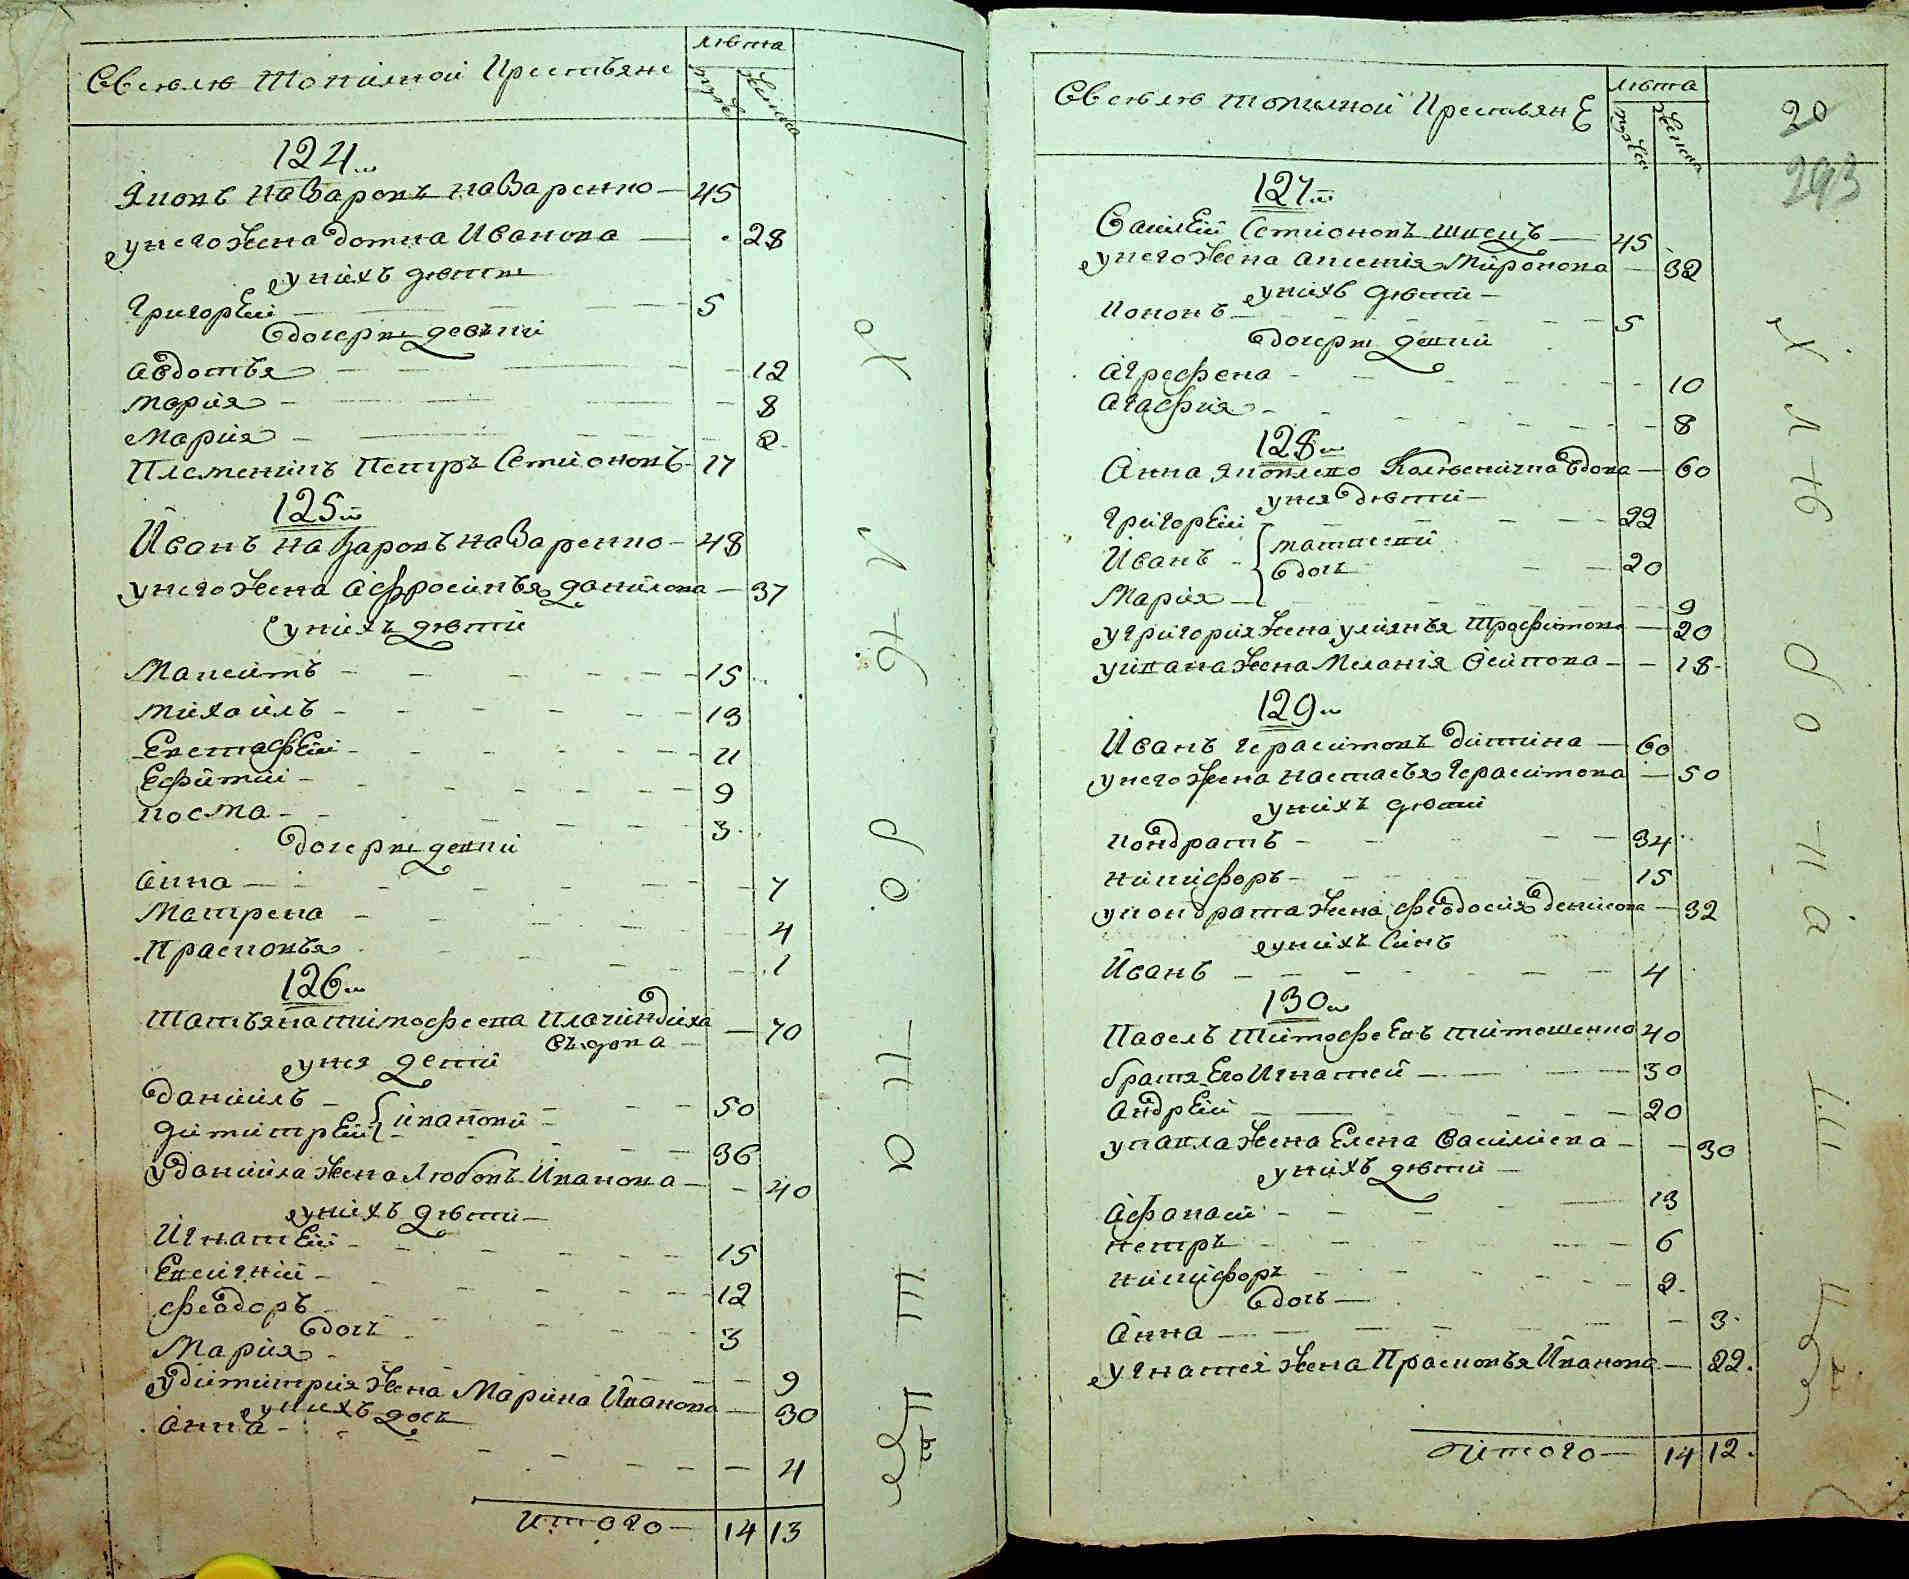 Вселѣ Топилной Крестьяне
лѣта
муже
женска
124м
Яковъ Назаровъ Назаренко 45
унего жена домна Иванова 28
унихъ дѣти
Григорей 5
дочери девки
авдотья 12
мария 8
Мария 2
Племеникъ Петръ Семионовъ 17
125й
Иванъ назаровъ назаренко 48
унего жена афросинья данилова 37
унихъ дѣти
Максимъ 15
михаилъ 13
Евстафей 11
Ефимий 9
косма 3
дочери девки
анна 7
Матрена 4
Прасковья 1
126м
Татьяна тимофеева Плачиндиха
въдова 70
унея дети
даниилъ 50
димитрей 36
ивановы
уданиила жена Любовъ Иванова 40
унихъ дѣти
Игнатей 15
Евсигний 12
феодоръ 3
дочъ
Мария 9
удимитрия жена Марина Иванова 30
унихъ дочъ
анна 4
итого 14 13
Вселѣ топилной Крестьяне
лѣта
муже
женска
20
293
127м
Василей Семионовъ швецъ 45
унего жена аксения Миронова 32
унихъ дѣти
кононъ 5
дочери девки
агрефена 10
агафия 8
128м
Анна яковлева вдова 60
унея дѣти
григорей 22
Иванъ 20
Мария 9
матвеевы
дочъ
угригория жена улиянья трофимова 20
уивана жена Мелания Осипова 18
129м
Иванъ герасимовъ дитина 60
унего жена настасья герасимова 50
унихъ дѣти
кондратъ 34
никифоръ 15
укондрата жена феодосия денисова 32
унихъ синъ
Иванъ 4
130м
Павелъ тимофеевъ тимошенко 40
братя Его Игнатей 30
андрей 20
упавла жена Елена василиева 30
унихъ дѣти
Афанаси 13
петръ 6
никифоръ 2
дочъ
Анна 3
уигнатея жена Прасковья Иванова 22
Итого 14 12